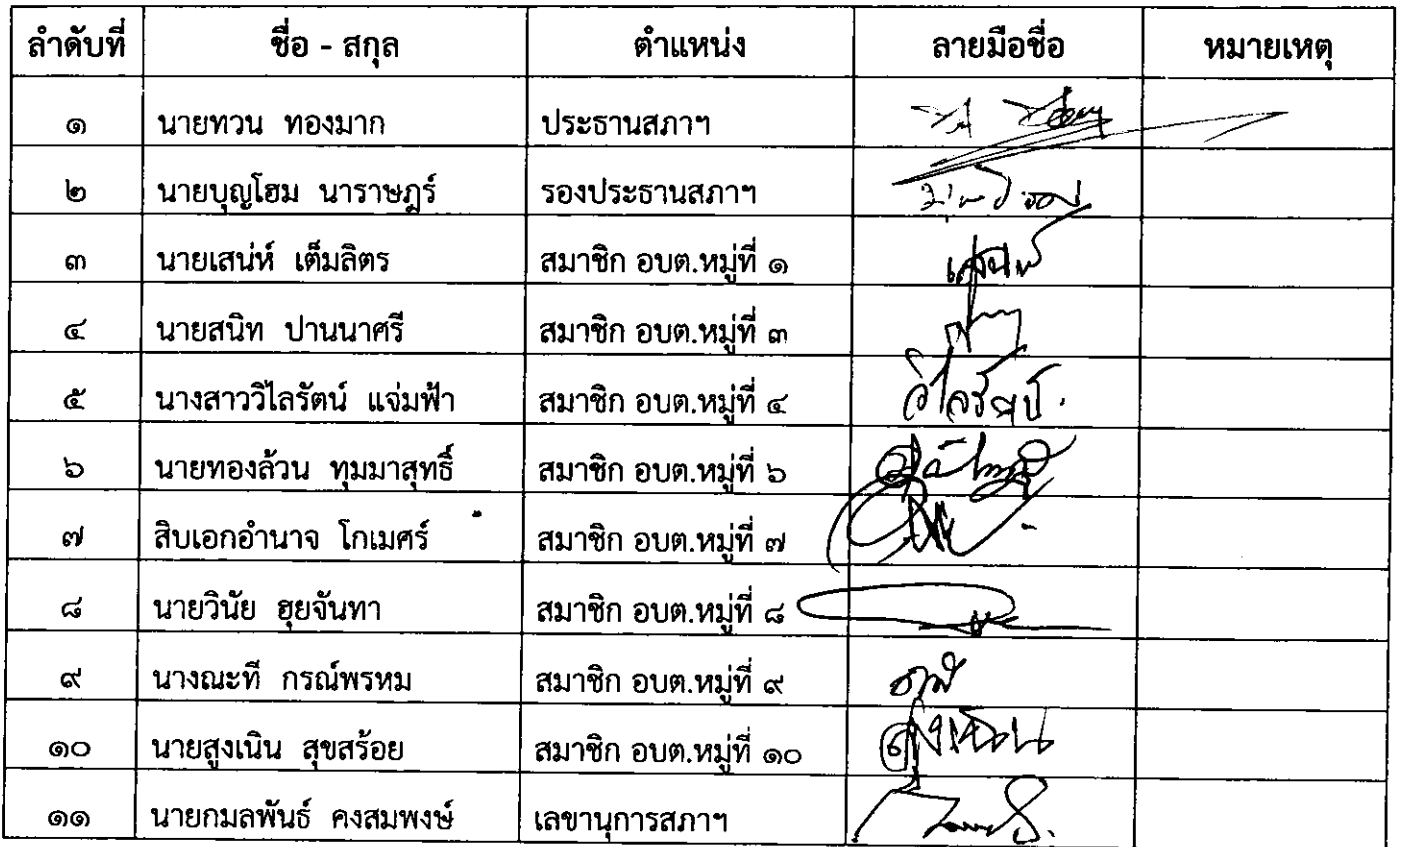 ลำดับที่ ชื่อ - สกุล ตำแหน่ง ลายมือชื่อ หมายเหตุ
๑ นายทวน ทองมาก ประธานสภาฯ
๒ นายบุญโฮม นาราษฎร์ รองประธานสภาฯ
๓ นายเสน่ห์ เต็มลิตร สมาชิก อบต.หมู่ที่ ๑
๔ นายสนิท ปานนาศรี สมาชิก อบต.หมู่ที่ ๓
๕ นางสาววิไลรัตน์ แจ่มฟ้า สมาชิก อบต.หมู่ที่ ๔ วิไลรัตน์
๖ นายทองล้วน ทุมมาสุทธิ์ สมาชิก อบต.หมู่ที่ ๖
๗ สิบเอกอำนาจ โกเมศร์ สมาชิก อบต.หมู่ที่ ๗
๘ นายวินัย ฮุยจันทา สมาชิก อบต.หมู่ที่ ๘
๙ นางณะที กรณ์พรหม สมาชิก อบต.หมู่ที่ ๙
๑๐ นายสูงเนิน สุขสร้อย สมาชิก อบต.หมู่ที่ ๑๐
๑๑ นายกมลพันธ์ คงสมพงษ์ เลขานุการสภาฯ